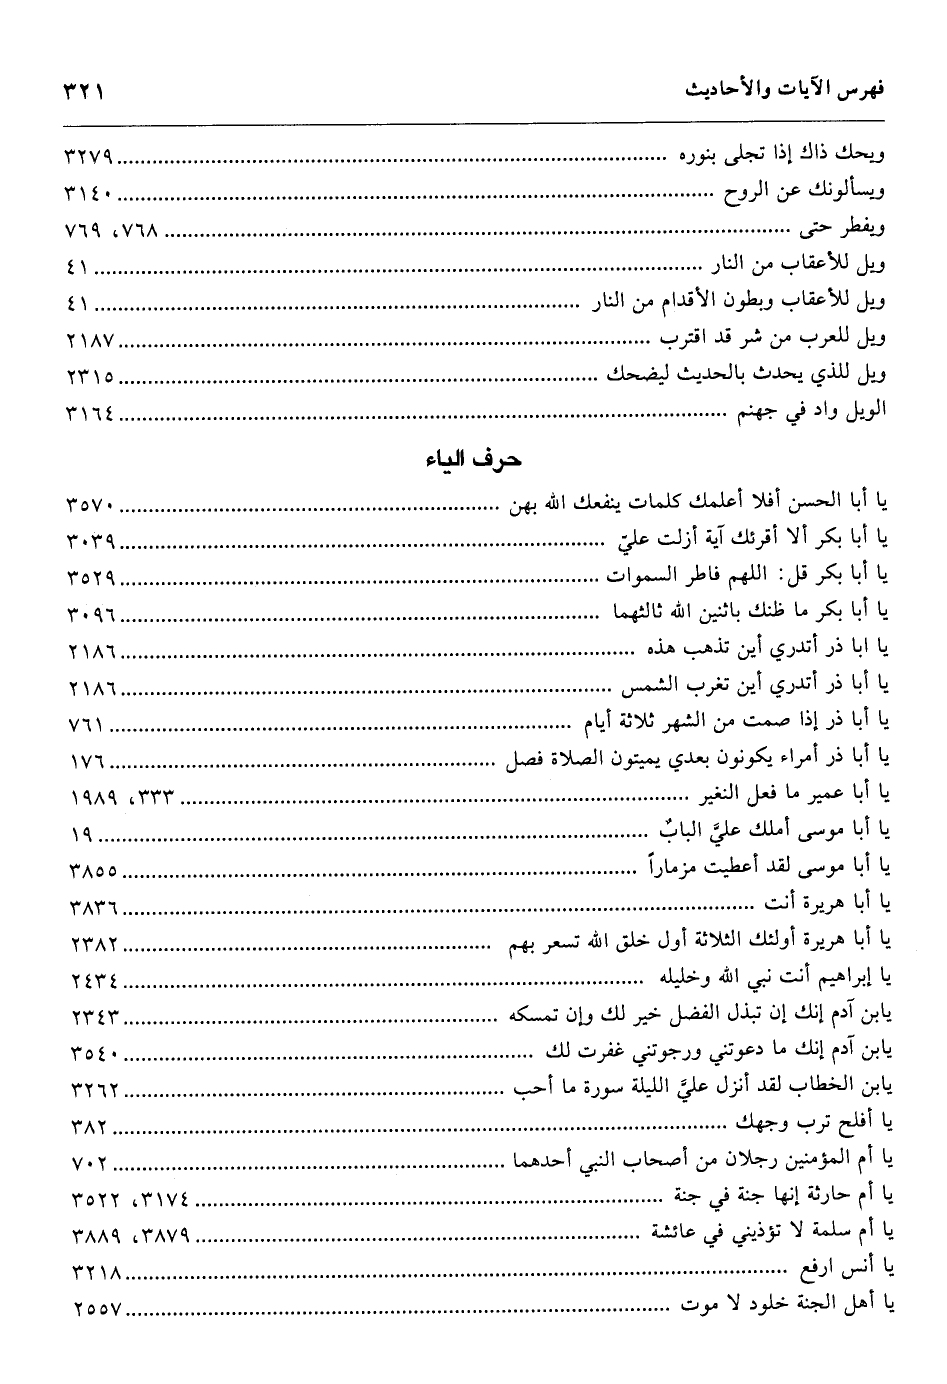 فهرس الآيات والأحاديث ٣٢١
ويحك ذاك إذا تجلى بنوره ........ ٣٢٧٩
ويسألونك عن الروح ........ ٣١٤٠
ويفطر حتى ........ ٧٦٨، ٧٦٩
ويل للأعقاب من النار ........ ٤١
ويل للأعقاب وبطون الأقدام من النار ........ ٤١
ويل للعرب من شر قد اقترب ........ ٢١٨٧
ويل للذي يحدث بالحديث ليضحك ........ ٢٣١٥
الويل واد في جهنم ........ ٣١٦٤
حرف الياء
يا أبا الحسن أفلا أعلمك كلمات ينفعك الله بهن ........ ٣٥٧٠
يا أبا بكر ألا أقرئك آية أزلت عليّ ........ ٣٠٣٩
يا أبا بكر قل: اللهم فاطر السموات ........ ٣٥٢٩
يا أبا بكر ما ظنك باثنين الله ثالثهما ........ ٣٠٩٦
يا ابا ذر أتدري أين تذهب هذه ........ ٢١٨٦
يا أبا ذر أتدري أين تغرب الشمس ........ ٢١٨٦
يا أبا ذر إذا صمت من الشهر ثلاثة أيام ........ ٧٦١
يا أبا ذر أمراء يكونون بعدي يميتون الصلاة فصل ........ ١٧٦
يا أبا عمير ما فعل النغير ........ ٣٣٣، ١٩٨٩
يا أبا موسى أملك عليَّ البابٌ ........ ١٩
يا أبا موسى لقد أعطيت مزماراً ........ ٣٨٥٥
يا أبا هريرة أنت ........ ٣٨٣٦
يا أبا هريرة أولئك الثلاثة أول خلق الله تسعر بهم ........ ٢٣٨٢
يا إبراهيم أنت نبي الله وخليله ........ ٢٤٣٤
يابن آدم إنك إن تبذل الفضل خير لك وإن تمسكه ........ ٢٣٤٣
يابن آدم إنك ما دعوتني ورجوتني غفرت لك ........ ٣٥٤٠
يابن الخطاب لقد أنزل عليَّ الليلة سورة ما أحب ........ ٣٢٦٢
يا أفلح ترب وجهك ........ ٣٨٢
يا أم المؤمنين رجلان من أصحاب النبي أحدهما ........ ٧٠٢
يا أم حارثة إنها جنة في جنة ........ ٣١٧٤، ٣٥٢٢
يا أم سلمة لا تؤذيني في عائشة ........ ٣٨٧٩، ٣٨٨٩
يا أنس ارفع ........ ٣٢١٨
يا أهل الجنة خلود لا موت ........ ٢٥٥٧